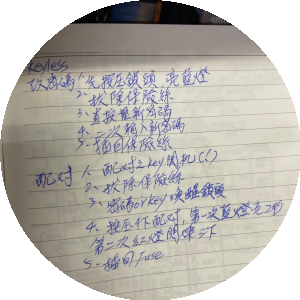 keyless
改密碼 1. 先按压鎖頭 亮藍燈
2. 拔除保險絲
3. 直接按新密碼
4. 二次輸入新密碼
5. 插回保險絲
配对 1. 配对之key開机
2. 拔除保險絲
3. 密碼or key 喚醒鎖頭
4. 按压下配对，第一次藍燈亮
第二次紅燈閃爍三下
5. 插回fuse